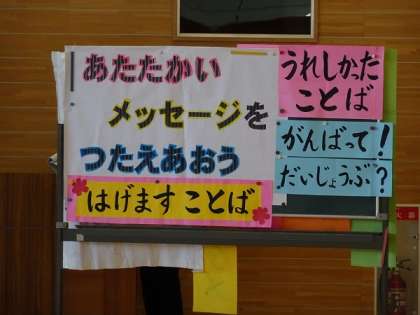 あたたかい
メッセージを
つたえあおう
はげます ことば
うれしかった
ことば
がんばって!
だいじょうぶ?